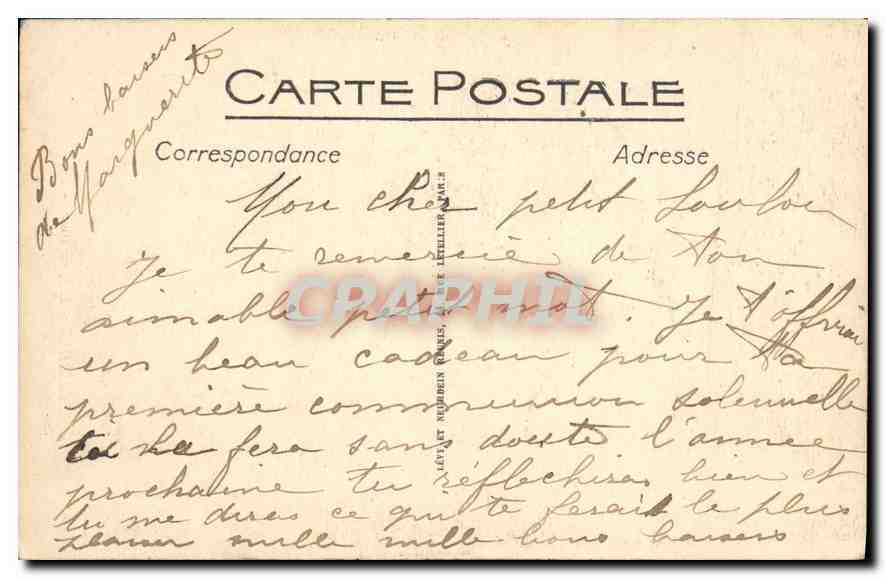 Bons baisers
de Marguerite
CARTE POSTALE
Correspondance
Adresse
Mon cher petit Loulou
Je te remercie de ton
aimable petit mot. Je t'offrirai
un beau cadeau pour ta
première communion solennelle
tu la fera sans doute l'année
prochaine tu réflechiras bien et
tu me diras ce qui te ferait le plus
plaisir mille mille bons baisers
LÉVY ET NEURDEIN RÉUNIS, 44 RUE LETELLIER, PARIS
CPAPHIL